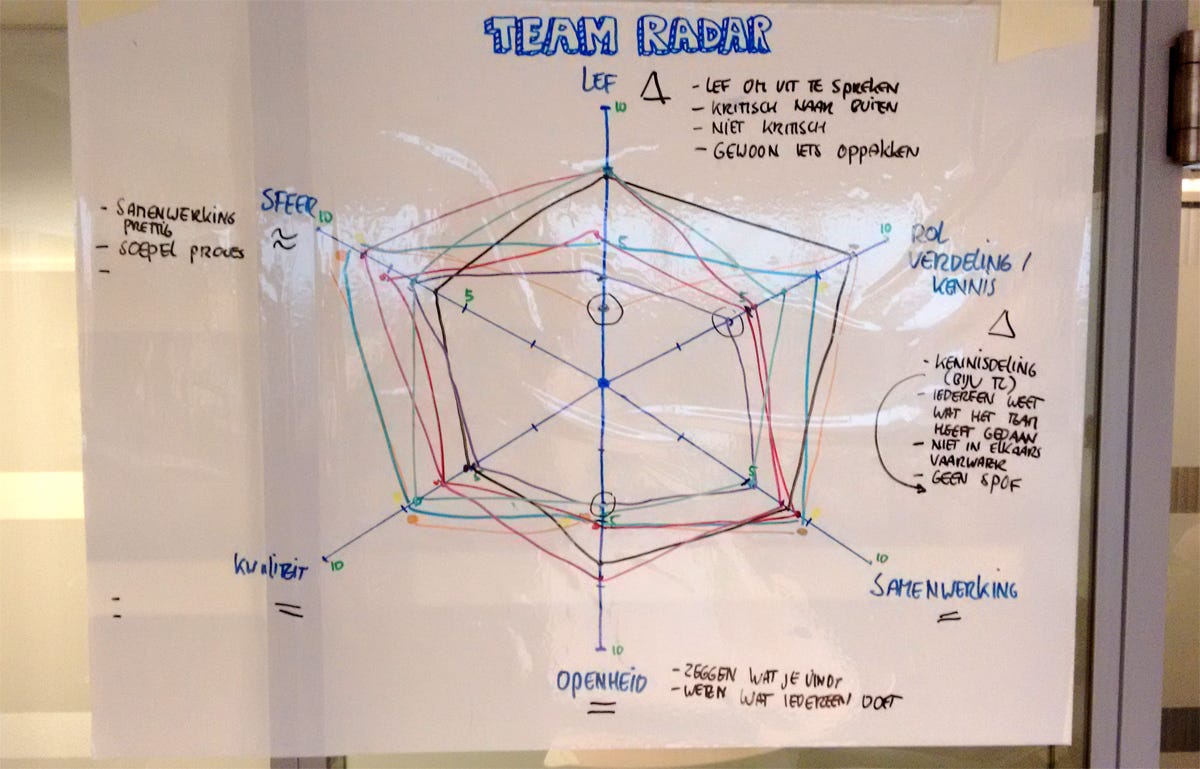 TEAM RADAR
LEF Δ
10
- LEF OM UIT TE SPREKEN
- KRITISCH NAAR BUITEN
- NIET KRITISCH
- GEWOON IETS OPPAKKEN
SFEER
10
≈
- SAMENWERKING
PRETTIG
- SOEPEL PROCES
-
10
ROL
VERDELING /
KENNIS
Δ
- KENNISDELING
(BIJV TL)
- IEDEREEN WEET
WAT HET TEAM
HEEFT GEDAAN
- NIET IN ELKAARS
VAARWATER
- GEEN SPOF
5
5
5
5
5
KWALITEIT
10
=
-
-
10
SAMENWERKING
=
10
OPENHEID
=
- ZEGGEN WAT JE VINDT
- WETEN WAT IEDEREEN DOET